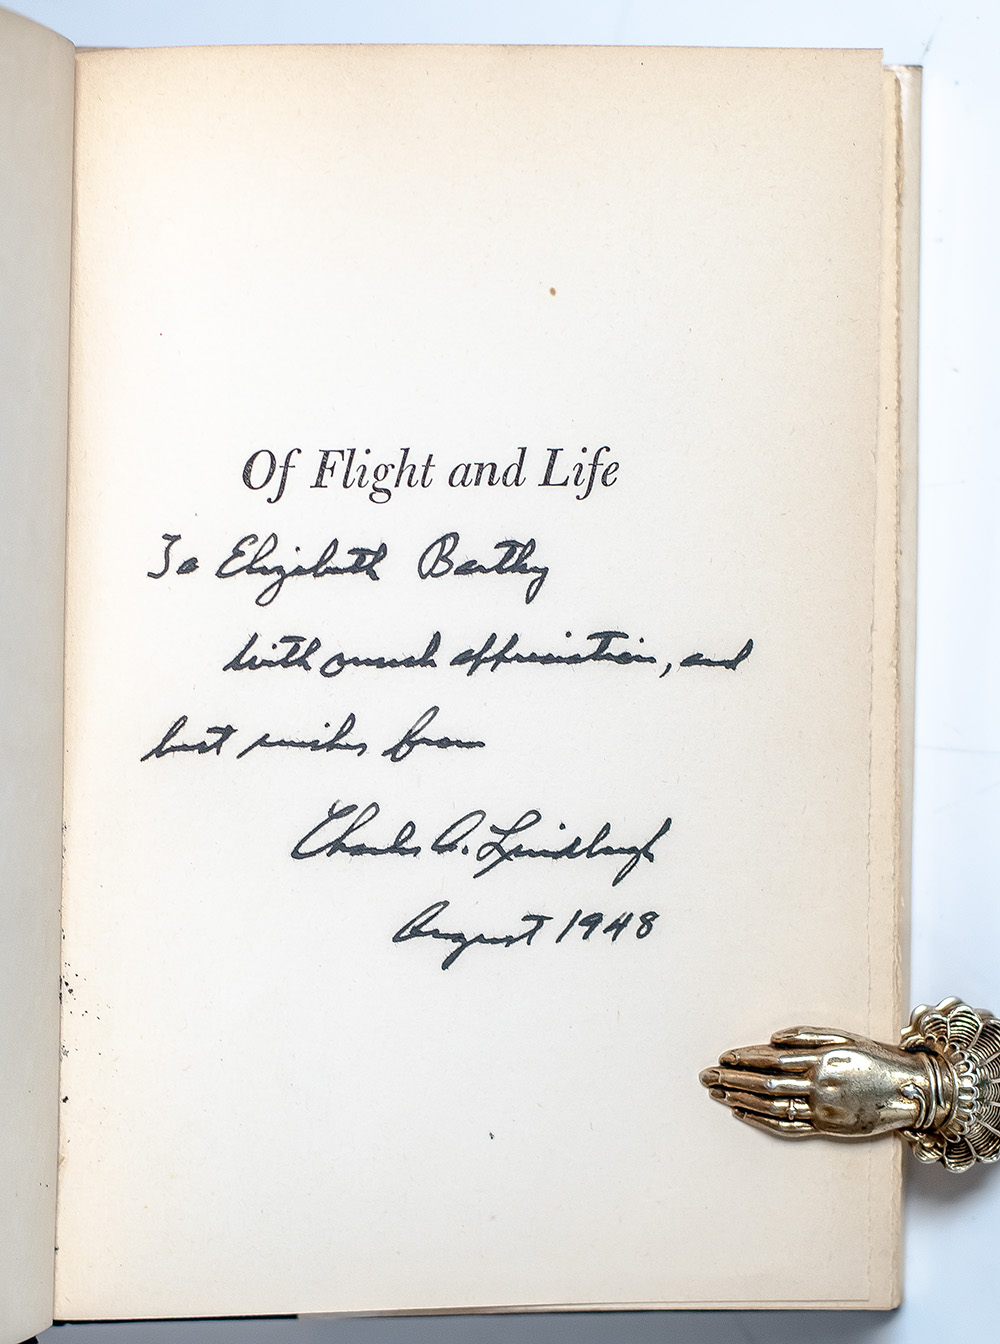 Of Flight and Life
To Elizabeth Bartley
with much appreciation, and
best wishes from
Charles A. Lindbergh
August 1948